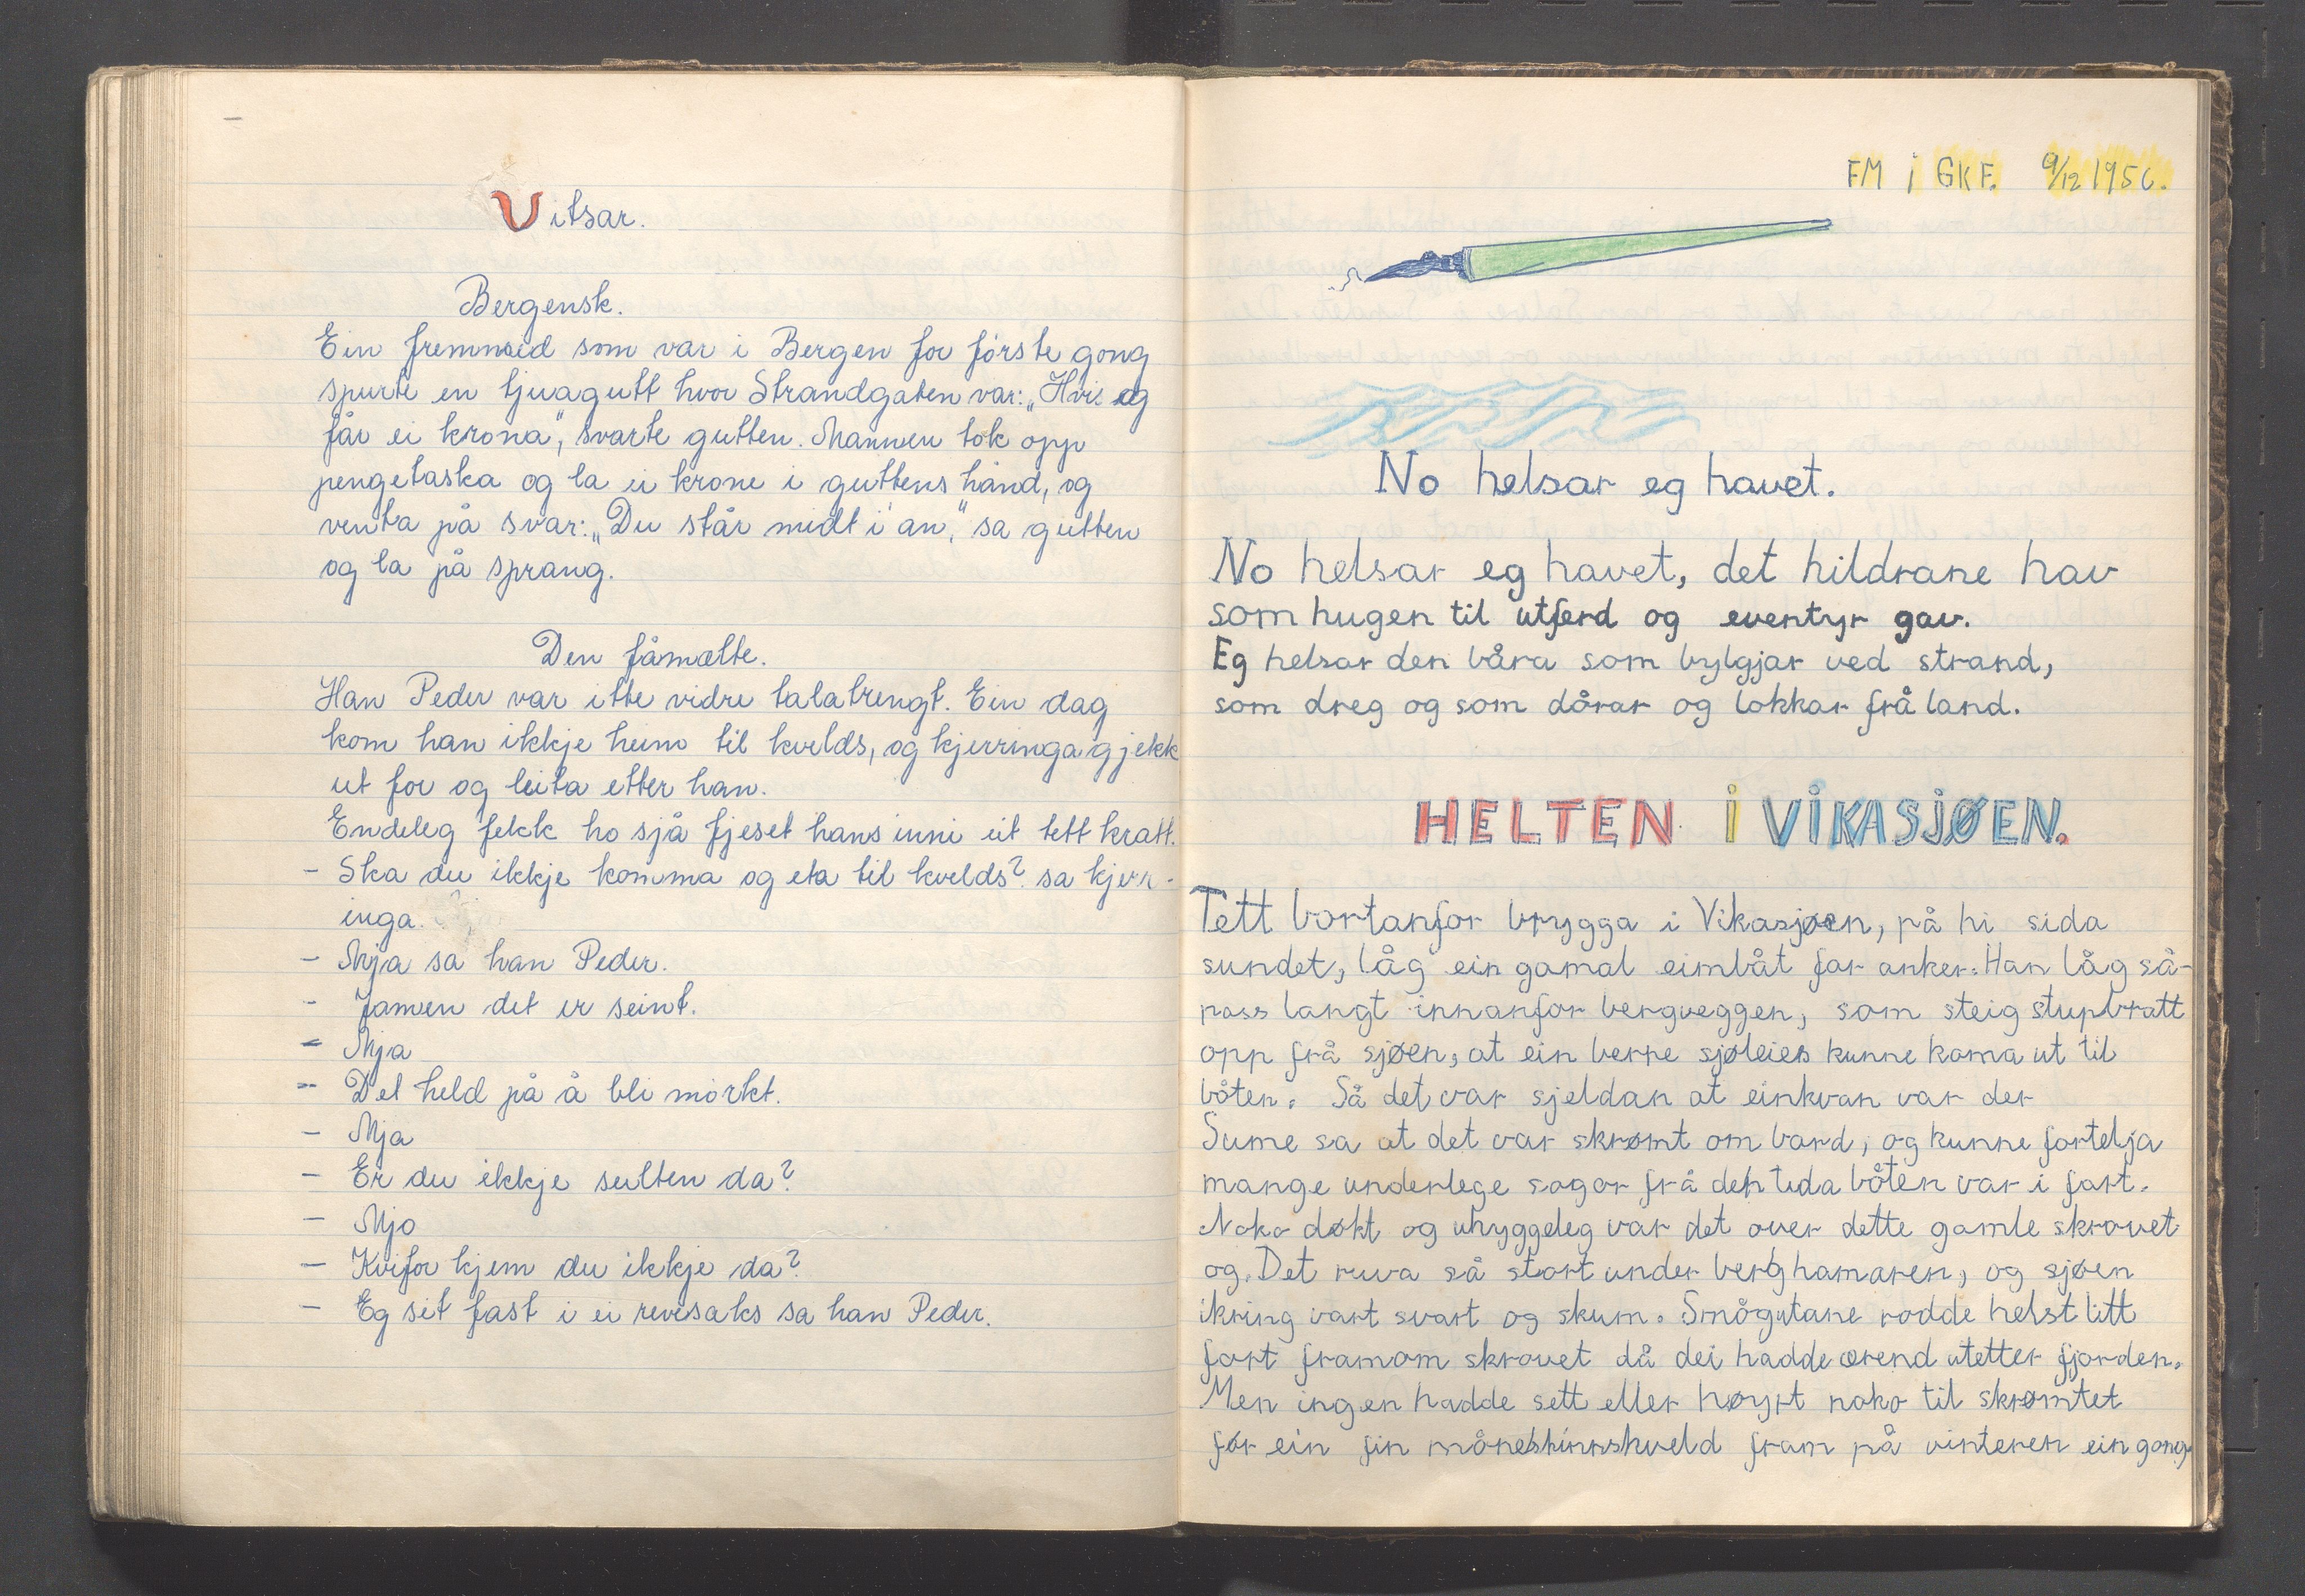 Vitsar.
Bergensk.
Ein fremmeid som var i Bergen for fórste gong
spurte en tjuagutt hvor Strandgaten var: „Hvis eg
får ei krona", svarte gutten. Mannen tok opp
pengetaska og la ei krone i guttens hånd, og
venta på svar: „Du står midt i an," sa gutten
og la på sprang.
Den fåmælte.
Han Peder var itte vidre talatrengt. Ein dag
kom han ikkje heim til kvelds, og kjerringa gjekk
ut for og leita etter han.
Endeleg fekk ho sjå fjeset hans inni eit tett kratt.
- Ska du ikkje komma og eta til kvelds? sa kjerr-
inga.
- Mja sa han Peder.
- Jamen det er seint.
- Mja
- Det held på å bli mórkt.
- Mja
- Er du ikkje sulten da?
- Mjo
- Kvifor kjem du ikkje da?
- Eg sit fast i ei revesaks sa han Peder.
FM i GKF. 9/12 1956.
No helsar eg havet.
No helsar eg havet, det hildrane hav
som hugen til utferd og eventyr gav.
Eg helsar den båra som bylgjar ved strand,
som dreg og som dårar og lokkar frå land.
HELTEN i VIKASJØEN.
Tett bortanfor brygga i Vikasjøen, på hi sida
sundet, låg ein gamal eimbåt for anker. Han låg så-
pass langt innanfor bergveggen, som steig stupbratt
opp frå sjøen, at ein berre sjøleies kunne koma ut til
båten. Så det var sjeldan at einkvan var der
Sume sa at det var skrømt om bord, og kunne fortelja
mange underlege sogor frå den tida båten var i fart.
Noko døkt og uhyggeleg var det over dette gamle skrovet
og. Det ruva så stort under berghamaren, og sjøen
ikring vart svart og skum. Smågutane rodde helst litt
fort framom skrovet då dei hadde ærend utetter fjorden.
Men ingen hadde sett eller høyrt noko til skrømtet
før ein fin måneskinnskveld fram på vinteren ein gong.